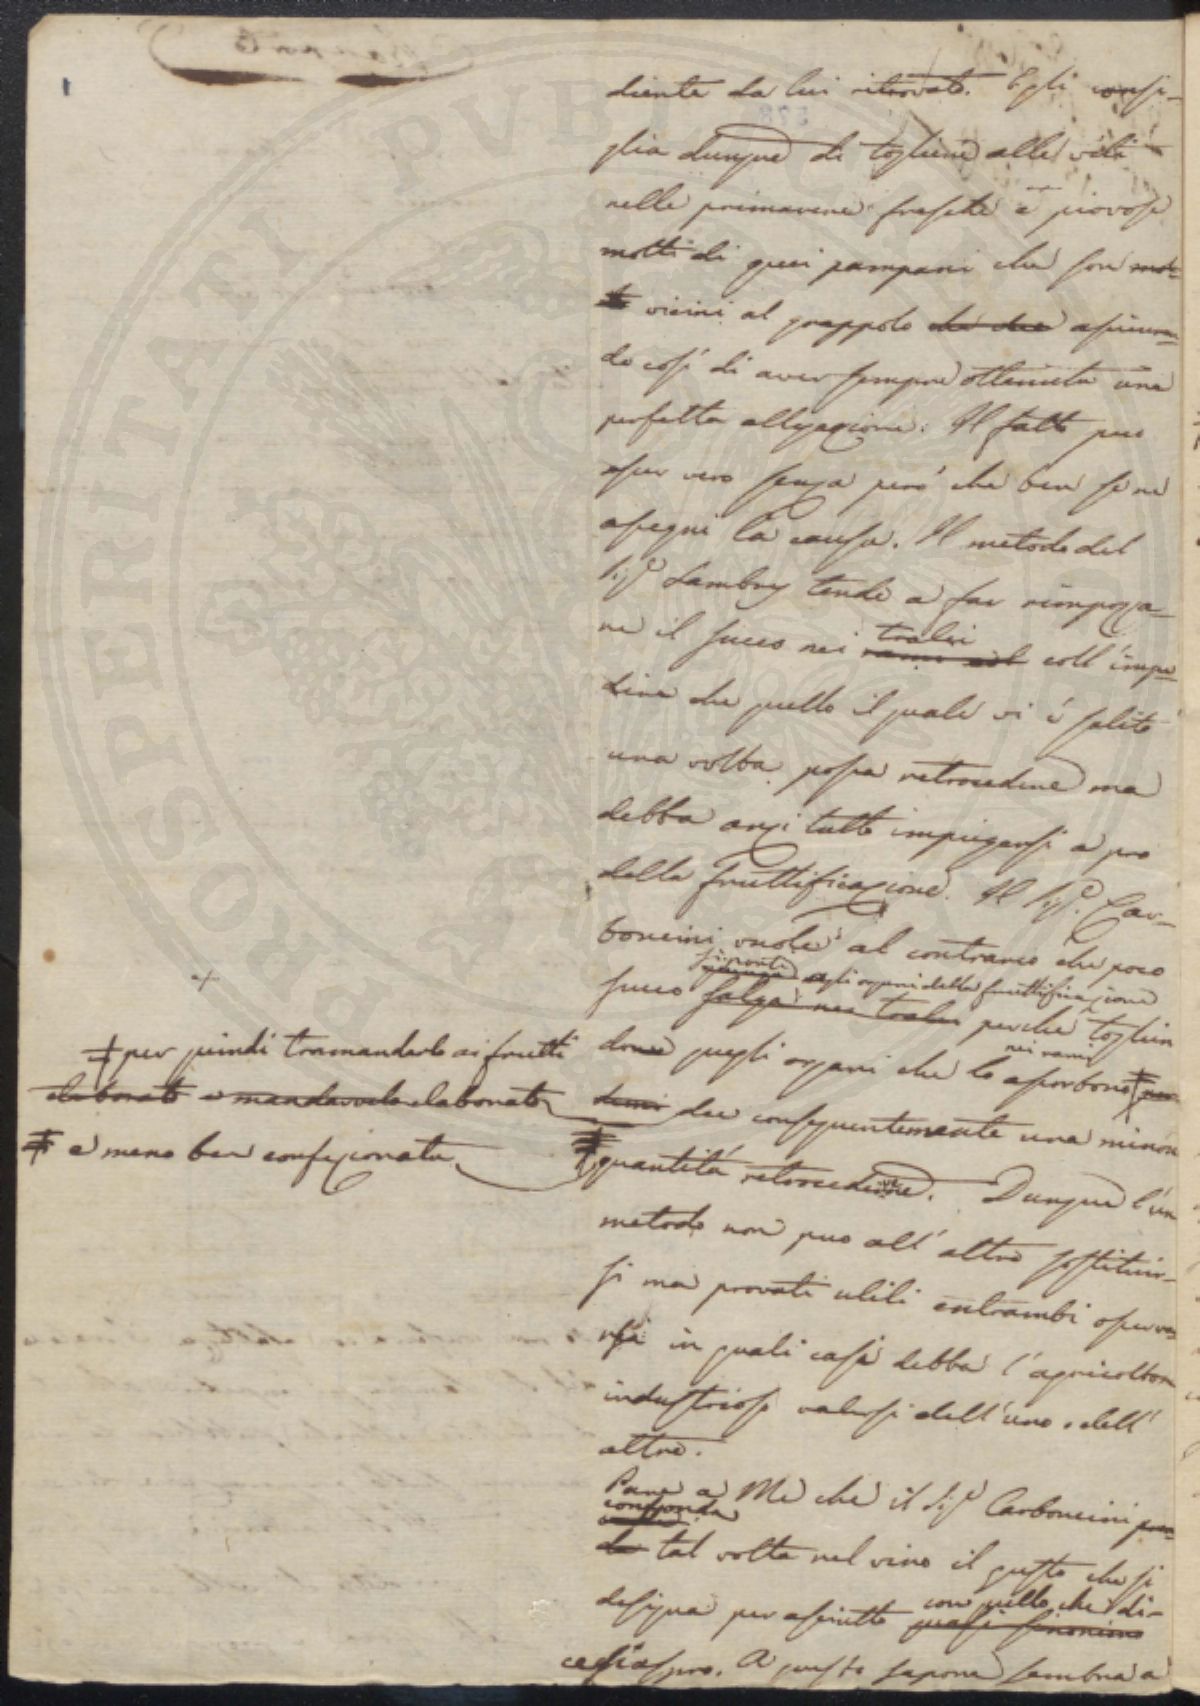 diente da lui ritrovato. Egli consi-
glia dunque di togliere alle viti
nelle primavere fresche e piovose
molti di quei pampani che son mol-
to vicini al grappolo che due assicuran-
do così di aver sempre ottenuta una
perfetta allegazione. Il fatto puo
esser vero senza però che ben se ne
assegni la causa. Il metodo del
Sigr Lambry tende a far rimpozza-
re il succo nei
tralci
coll'impe-
dire che quello il quale vi è salito
una volta possa retrocedere ma
debba anzi tutto impiegarsi a pro
della fruttificazione. Il Sigr. Car-
boncini vuole al contrario che poco
si porti agli organi della fruttificazione
succo salga nei tralci perché toglien
nei rami
done quegli organi che lo assorbono
dee conseguentemente una minor
quantità retrocedere. Dunque l'un
metodo non puo all'altro sostituir-
si ma provati utili entrambi osserve-
rsi in quali casi debba l'agricoltore
industrioso valersi dell'uno o dell'
altro.
Pare a Me che il Sigr Carboncini
confonda
tal volta nel vino il gusto che si
con quello che di-
designa per asciutto quasi sinonimo
cesi aspro. A questo sapore sembra a
per quindi tramandarlo ai frutti
elaborato e mandarvelo elaborato
e meno ben confezionata
1
PROSPERITATI PVBLICAE